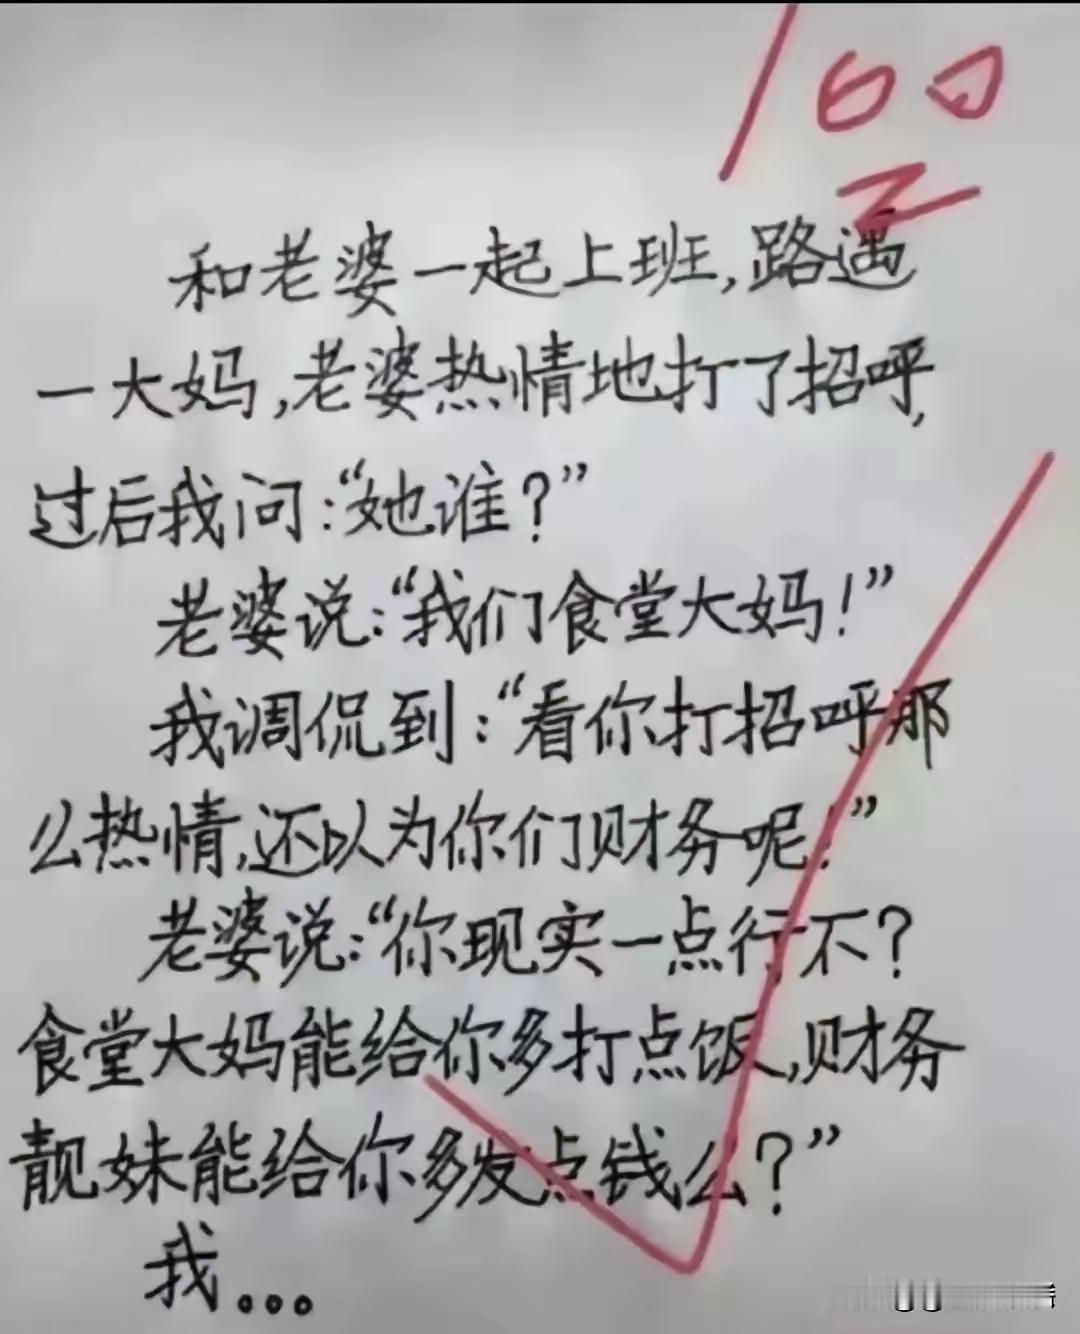 100
和老婆一起上班,路遇
一大妈,老婆热情地打了招呼,
过后我问:“她谁?”
老婆说:“我们食堂大妈!”
我调侃到:“看你打招呼那
么热情,还以为你们财务呢!”
老婆说:“你现实一点行不?
食堂大妈能给你多打点饭,财务
靓妹能给你多发点钱么?”
我...